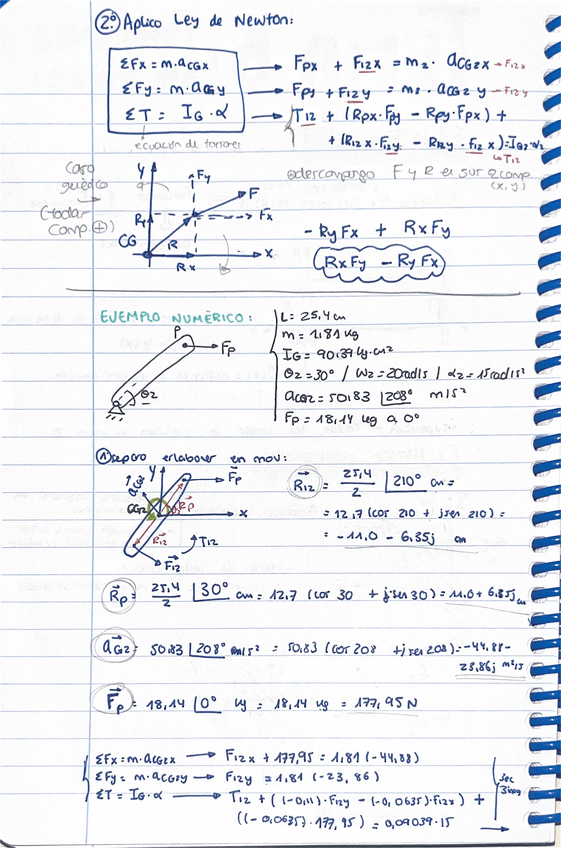 2.º Aplico Ley de Newton:
ΣFx = m·aCGx → FPx + F12x = m2 · aCG2x → F12x
ΣFy = m·aCGy → FPy + F12y = m2 · aCG2y → F12y
ΣT = IG·α → T12 + (RPx·FPy - RPy·FPx) +
+ (R12x·F12y - R12y·F12x) = IG2·α2
ecuación de torsores
→ T12
Caso genérico → (todas comp. ⊕)
descompongo F y R en sus 2 comp. (x, y)
y
Fy
F
Fx
Ry
R
CG
Rx
x
- RyFx + RxFy
RxFy - RyFx
EJEMPLO NUMÉRICO:
P
FP
θ2
L = 25,4 cm
m = 1,81 kg
IG = 90,39 kg·cm²
θ2 = 30° / ω2 = 20 rad/s / α2 = 15 rad/s²
aCG2 = 50,83 |208° m/s²
FP = 18,14 kg a 0°
1º Separo eslabones en mov:
y
FP
aG2
CG2
RP
x
R12
T12
F12
R12 = 25,4/2 |210° cm =
= 12,7 (cos 210 + jsen 210) =
= -11,0 - 6,35j cm
RP = 25,4/2 |30° cm = 12,7 (cos 30 + jsen 30) = 11,0 + 6,35j cm
aG2 = 50,83 |208° m/s² = 50,83 (cos 208 + jsen 208) = -44,88 -
23,86j m²/s
FP = 18,14 |0° kg = 18,14 kg = 177,95 N
ΣFx = m·aCG2x → F12x + 177,95 = 1,81 (-44,88)
ΣFy = m·aCG2y → F12y = 1,81 (-23,86)
ΣT = IG·α → T12 + ((-0,11)·F12y - (-0,0635)·F12x) +
((-0,0635)·177,95) = 0,09039·15